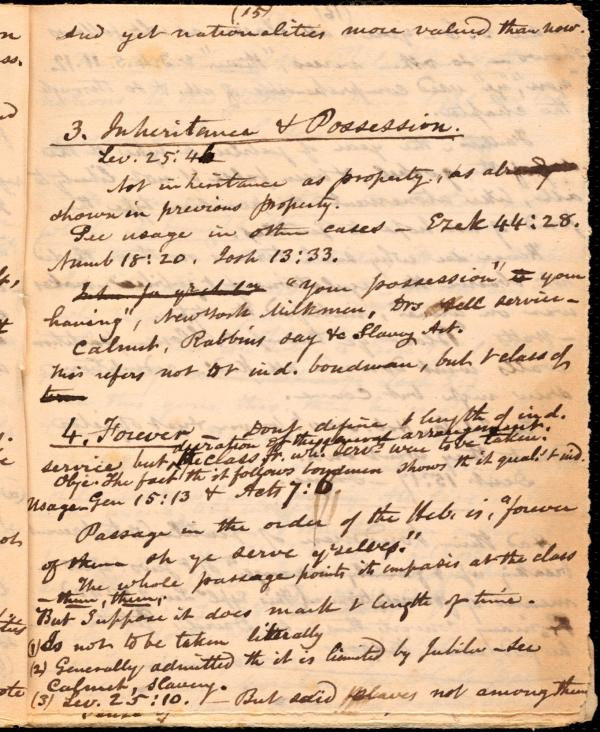 (15)
And yet nationalities more valued than now.
3. Inheritance & Possession.
Lev. 25:46
Not inheritance as property, as already
shown in previous property.
See usage in other cases – Ezek 44:28.
Numb 18:20. Josh 13:33.
"Your possession" your
having", New York Milkmen, Drs sell service –
Calmet, Rabbins say &c Slavery Art.
This refers not to t ind. bondman, but t class of
4. Forever – Don't define t length of ind.
duration of the general arrangement.
service but the class fr. wh. servts were to be taken.
Obje. The fact th it follows bondmen shows th it qual. t ind.
Usage – Gen 15:13 & Acts 7:6.
Passage in the order of the Heb. is, "forever
of them sh ye serve y'selves."
The whole passage points its emphasis at the class
– them, them;
But Suppose it does mark t length of time.
(1) Is not to be taken literally
(2) Generally admitted th it is limited by Jubilee – see
Calmet, Slavery.
(3) Lev. 25:10. – But said slaves not among them